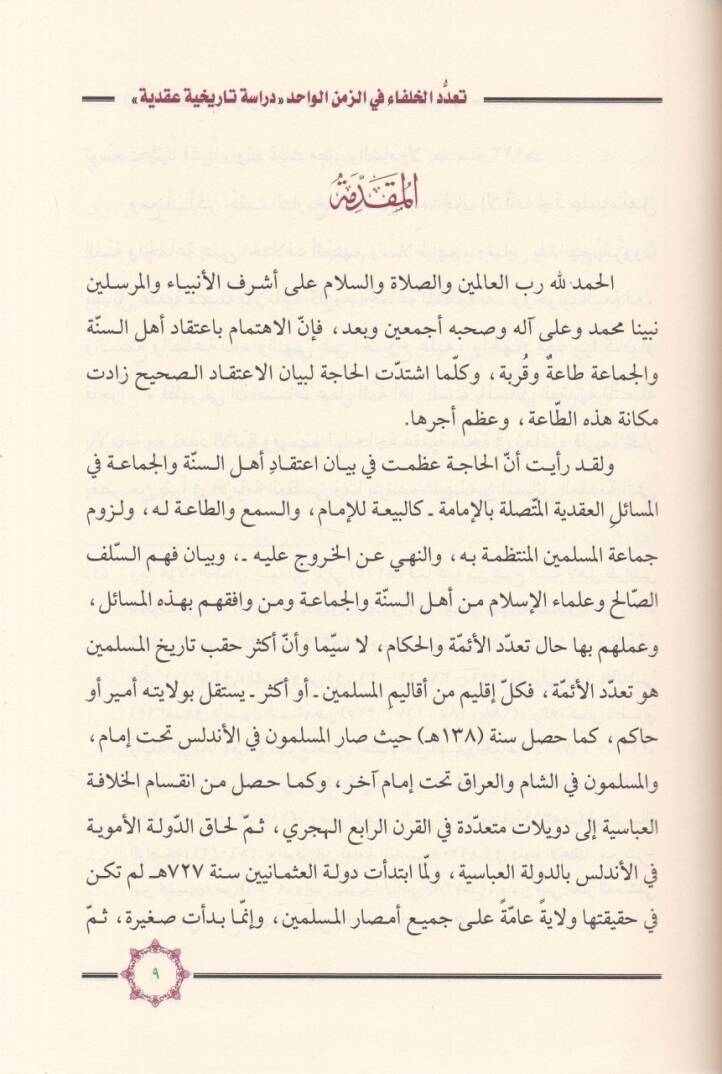 تعدُّد الخلفاء في الزمن الواحد «دراسة تاريخية عقدية»
المُقَدِّمَةُ
الحمد لله رب العالمين والصلاة والسلام على أشرف الأنبياء والمرسلين
نبينا محمد وعلى آله وصحبه أجمعين وبعد، فإنّ الاهتمام باعتقاد أهل السنّة
والجماعة طاعةٌ وقُربة، وكلّما اشتدّت الحاجة لبيان الاعتقاد الصحيح زادت
مكانة هذه الطّاعة، وعظم أجرها.
ولقد رأيت أنّ الحاجة عظمت في بيان اعتقادِ أهل السنّة والجماعة في
المسائلِ العقدية المتّصلة بالإمامة ـ كالبيعة للإمام، والسمع والطاعة له، ولزوم
جماعة المسلمين المنتظمة به، والنهي عن الخروج عليه ـ، وبيان فهم السّلف
الصّالح وعلماء الإسلام من أهل السنّة والجماعة ومن وافقهم بهذه المسائل،
وعملهم بها حال تعدّد الأئمّة والحكام، لا سيّما وأنّ أكثر حقب تاريخ المسلمين
هو تعدّد الأئمّة، فكلّ إقليم من أقاليمِ المسلمين ـ أو أكثر ـ يستقل بولايته أمير أو
حاكم، كما حصل سنة (١٣٨هـ) حيث صار المسلمون في الأندلس تحت إمام،
والمسلمون في الشام والعراق تحت إمام آخر، وكما حصل من انقسام الخلافة
العباسية إلى دويلات متعدّدة في القرن الرابع الهجري، ثمّ لحاق الدّولة الأموية
في الأندلس بالدولة العباسية، ولمّا ابتدأت دولة العثمانيين سنة ٧٢٧هـ لم تكن
في حقيقتها ولايةً عامّةً على جميع أمصار المسلمين، وإنّما بدأت صغيرة، ثمّ
٩